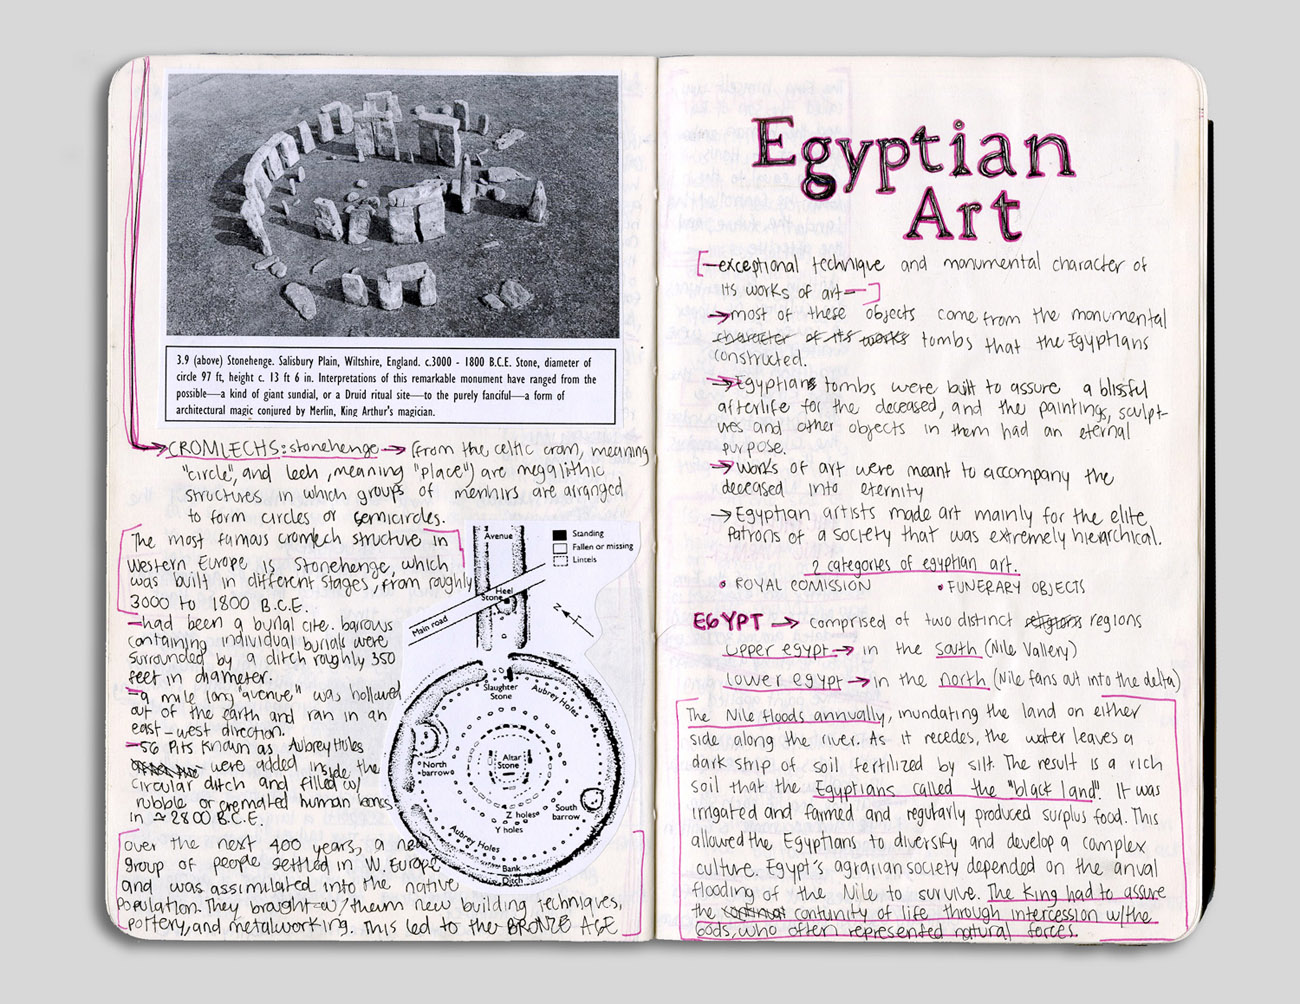 3.9 (above) Stonehenge. Salisbury Plain, Wiltshire, England. c.3000 - 1800 B.C.E. Stone, diameter of
circle 97 ft, height c. 13 ft 6 in. Interpretations of this remarkable monument have ranged from the
possible—a kind of giant sundial, or a Druid ritual site—to the purely fanciful—a form of
architectural magic conjured by Merlin, King Arthur's magician.
CROMLECHS: stonehenge → (from the celtic crom, meaning
"circle", and lech, meaning "place") are megalithic
structures in which groups of menhirs are arranged
to form circles or semicircles.
The most famous cromlech structure in
Western Europe is Stonehenge, which
was built in different stages, from roughly
3000 to 1800 B.C.E.
-had been a burial cite. barrows
containing individual burials were
surrounded by a ditch roughly 350
feet in diameter.
-a mile long "avenue" was hollowed
out of the earth and ran in an
east-west direction.
-56 Pits known as Aubrey Holes
were added inside the
circular ditch and filled w/
rubble or cremated human bones
in ≃ 2800 B.C.E.
over the next 400 years, a new
group of people settled in W. Europe
and was assimilated into the native
population. They brought w/ them new building techniques,
pottery, and metalworking. This led to the BRONZE AGE
Avenue
Standing
Fallen or missing
Lintels
Heel
Stone
Main road
N
Slaughter
Stone
Aubrey Holes
North
barrow
Altar
Stone
South
barrow
Z holes
Y holes
Aubrey Holes
Bank
Ditch
Egyptian
Art
[-exceptional technique and monumental character of
its works of art-]
→most of these objects come from the monumental
character of its works tombs that the Egyptians
constructed.
→Egyptian tombs were built to assure a blissful
afterlife for the deceased, and the paintings, sculpt-
ures and other objects in them had an eternal
purpose.
→works of art were meant to accompany the
deceased into eternity
→Egyptian artists made art mainly for the elite
patrons of a society that was extremely hierarchical.
2 categories of egyptian art.
• ROYAL COMISSION • FUNERARY OBJECTS
EGYPT → comprised of two distinct religions regions
Upper egypt → in the south (Nile Vallery)
Lower egypt → in the north (Nile fans out into the delta)
The Nile floods annually, inundating the land on either
side along the river. As it recedes, the water leaves a
dark strip of soil fertilized by silt. The result is a rich
soil that the Egyptians called the "black land". It was
irrigated and farmed and regularly produced surplus food. This
allowed the Egyptians to diversify and develop a complex
culture. Egypt's agrarian society depended on the anval
flooding of the Nile to survive. The King had to assure
the contunity of life through intercession w/the
Gods, who often represented natural forces.